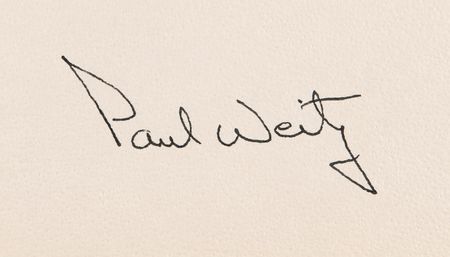 Paul Weitz